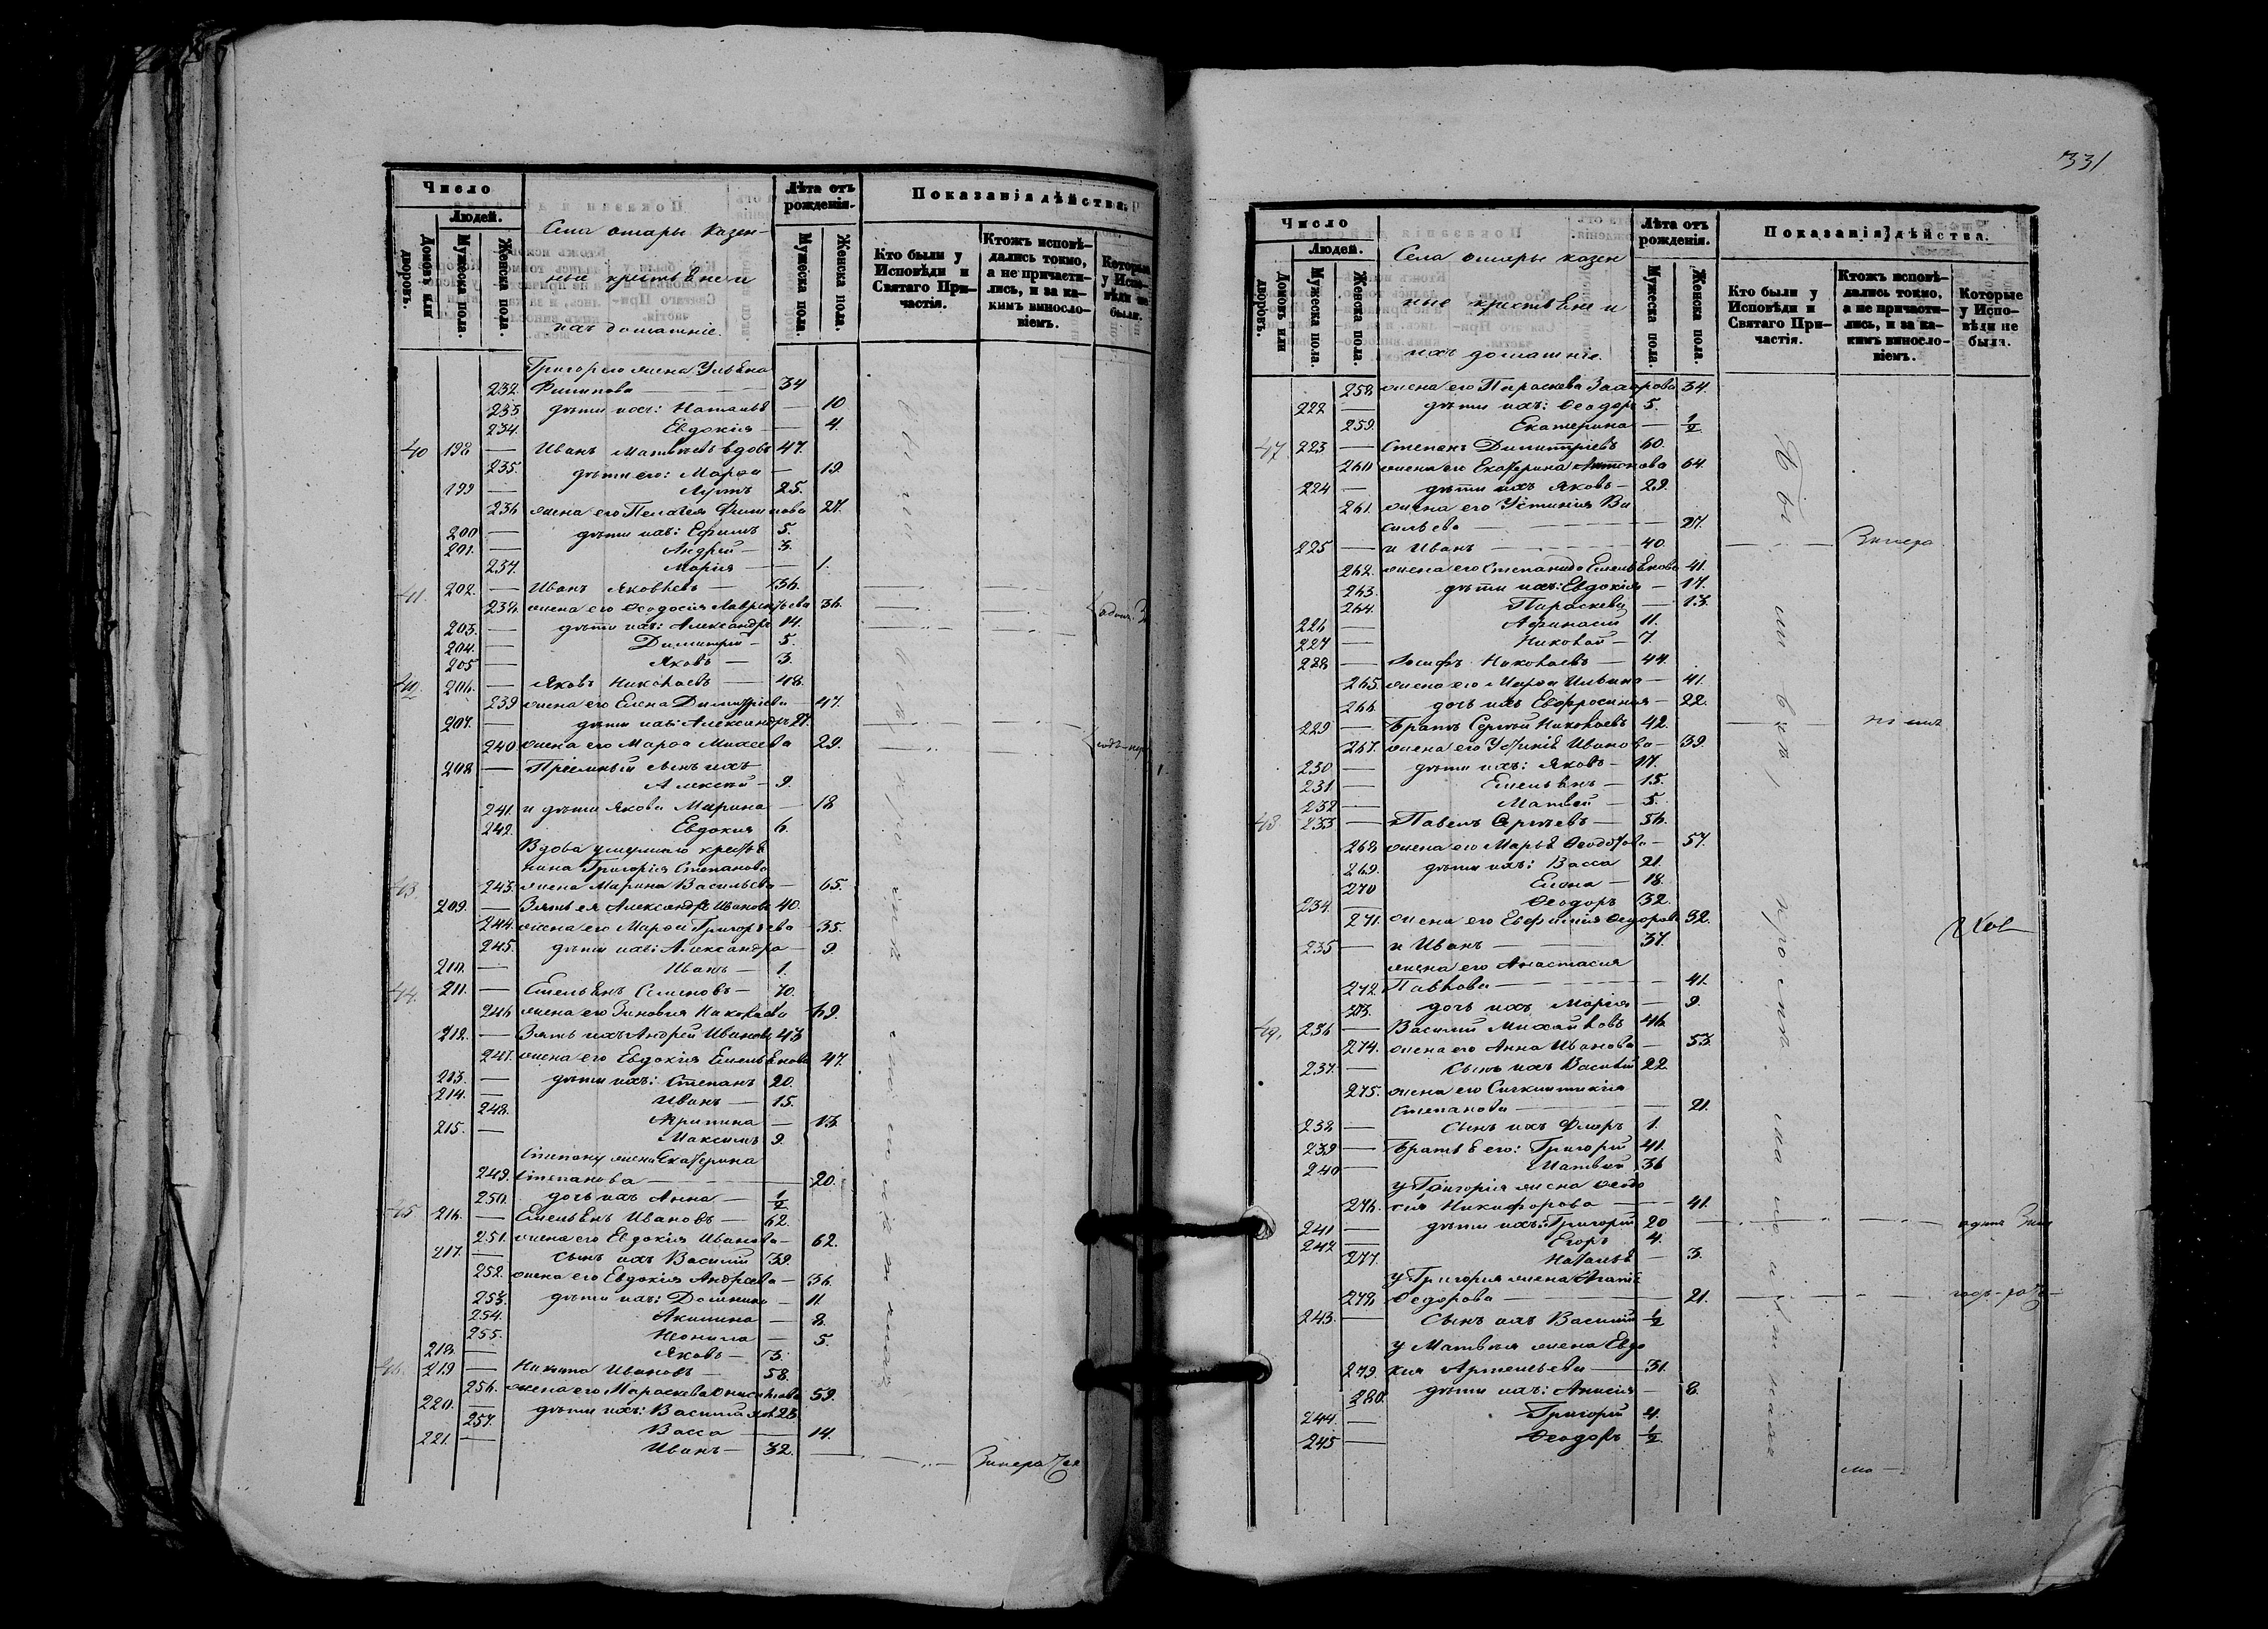 Число
Людей.
Домовъ или дворовъ.
Мужеска пола.
Женска пола.
Села отары казен-
ные крестьяне и
ихъ домашніе.
Лѣта отъ рожденія.
Мужеска пола.
Женска пола.
Показанія дѣйства.
Кто были у Исповѣди и Святаго При-частія.
Ктожъ исповѣ-дались токмо, а не причасти-лись, и за ка-кимъ виносло-віемъ.
Которые у Испо-вѣди не были.
Григорію жена Ульяна
232. Филипова — 34
233 дѣти ихъ: Наталья — 10
234. Евдокія — 4.
40 198 — Иванъ Матвѣевъ вдовъ 47.
235. дѣти его: Марѳа — 19
199 — 25.
236 жена его Пелагея Филипова 27.
200 — дѣти ихъ: Ефимъ 5.
201. — Андрей — 3.
237. Марія — 1.
41. 202. — Иванъ Яковлевъ — 36.
238. жена его Ѳеодосія Лаврентьева 36.
203. — дѣти ихъ: Александръ 14.
204. — Димитрій — 5.
205 — Яковъ — 3.
42 206. — Яковъ Николаевъ — 48.
239 жена его Елена Димитріева 47.
207. — дѣти ихъ: Александръ 27.
240. жена его Марѳа Михеева 29.
208 — Пріемный сынъ ихъ
Алексѣй — 9.
241. и дѣти Якова Марина — 18
242. Евдокія 6.
Вдова умершаго крестья
нина Григорія Степанова
43. 243. жена Марина Васильева — 65.
209. — Зять ея Александръ Ивановъ 40.
244. жена его Марѳа Григорьева — 35.
245. дѣти ихъ: Александра — 9.
210. — Иванъ — 1.
44. 211. — Емельянъ Семеновъ — 70.
246 жена его Зиновія Николаева 69.
212. — Зять ихъ Андрей Ивановъ 43
247. жена его Евдокія Емельянова 47.
213. — дѣти ихъ: Степанъ 20.
214. — Иванъ — 15.
248. Агрипина — 13.
215. — Максимъ 9.
Степану жена Екатерина
249. Степанова — 20.
250. дочь ихъ Анна — 1/2
45. 216. — Емельянъ Ивановъ — 62.
251. жена его Евдокія Иванова — 62.
217. — сынъ ихъ Василій 39.
252. жена его Евдокія Андреева — 36.
253. дѣти ихъ: Домникія — 11.
254. Акилина — 8.
255. Неонила — 5.
218. — Яковъ — 3.
46. 219 — Никита Ивановъ — 58.
256. жена его Параскева Онисимова 59.
220. — дѣти ихъ: Василій 23
257. Васса — 14.
221. — Иванъ — 32. Вчера
331
Число
Людей.
Домовъ или дворовъ.
Мужеска пола.
Женска пола.
Села отары казен
ные крестьяне и
ихъ домашніе.
Лѣта отъ рожденія.
Мужеска пола.
Женска пола.
Показанія дѣйства.
Кто были у Исповѣди и Святаго При-частія.
Ктожъ исповѣ-дались токмо, а не причасти-лись, и за ка-кимъ виносло-віемъ.
Которые у Испо-вѣди не были.
258 жена его Параскева Захарова 34.
222 — дѣти ихъ: Ѳеодоръ 5.
259. Екатерина — 1/2
47 223 — Степанъ Димитріевъ 60.
260 жена его Екатерина Антонова 64.
224 — дѣти ихъ Яковъ — 29.
261. жена его Устинія Ва
сильева — 27.
225 — и Иванъ — 40.
262. жена его Степанида Емельянова 41.
263. дѣти ихъ: Евдокія — 17.
264. Параскева — 13.
226 — Афанасій 11.
227 — Николай — 7.
228 — Іосифъ Николаевъ — 44.
265. жена его Марѳа Ильина — 41.
266. дочь ихъ Евфросинія — 22.
229 — Братъ Сергѣй Николаевъ 42.
267. жена его Устинія Иванова — 39.
230 — дѣти ихъ: Яковъ — 17.
231 — Емельянъ — 15.
232 — Матвей — 5.
48. 233 — Павелъ Сергѣевъ — 56.
268 жена его Марья Ѳеодотова — 57.
269. дѣти ихъ: Васса 21.
270 Елена — 18.
234. — Ѳеодоръ 32.
271. жена его Евфимія Ѳедорова 32.
235 — и Иванъ — 37.
жена его Анастасія
272 Павлова — 41.
273. дочь ихъ Марія — 9.
49. 236 — Василій Михайловъ 46.
274. жена его Анна Иванова — 53.
237. — сынъ ихъ Василій 22
275. жена его Сигклитикія
Степанова — 21.
238 — Сынъ ихъ Флоръ 1.
239 — Братья его: Григорій 41.
240 — Матвей 36
у Григорія жена Ѳеодо
276. сія Никифорова — 41.
241 — дѣти ихъ: Григорій 20
242 — Егоръ 4.
277. Наталья — 3.
у Григорія жена Агапія
278. Ѳедорова — 21.
243. — Сынъ ихъ Василій 1/2
у Матвея жена Евдо
279. кія Артемьева — 31.
280. дѣти ихъ: Анисія — 8.
244. — Григорій 4.
245 — Ѳеодоръ 1/2